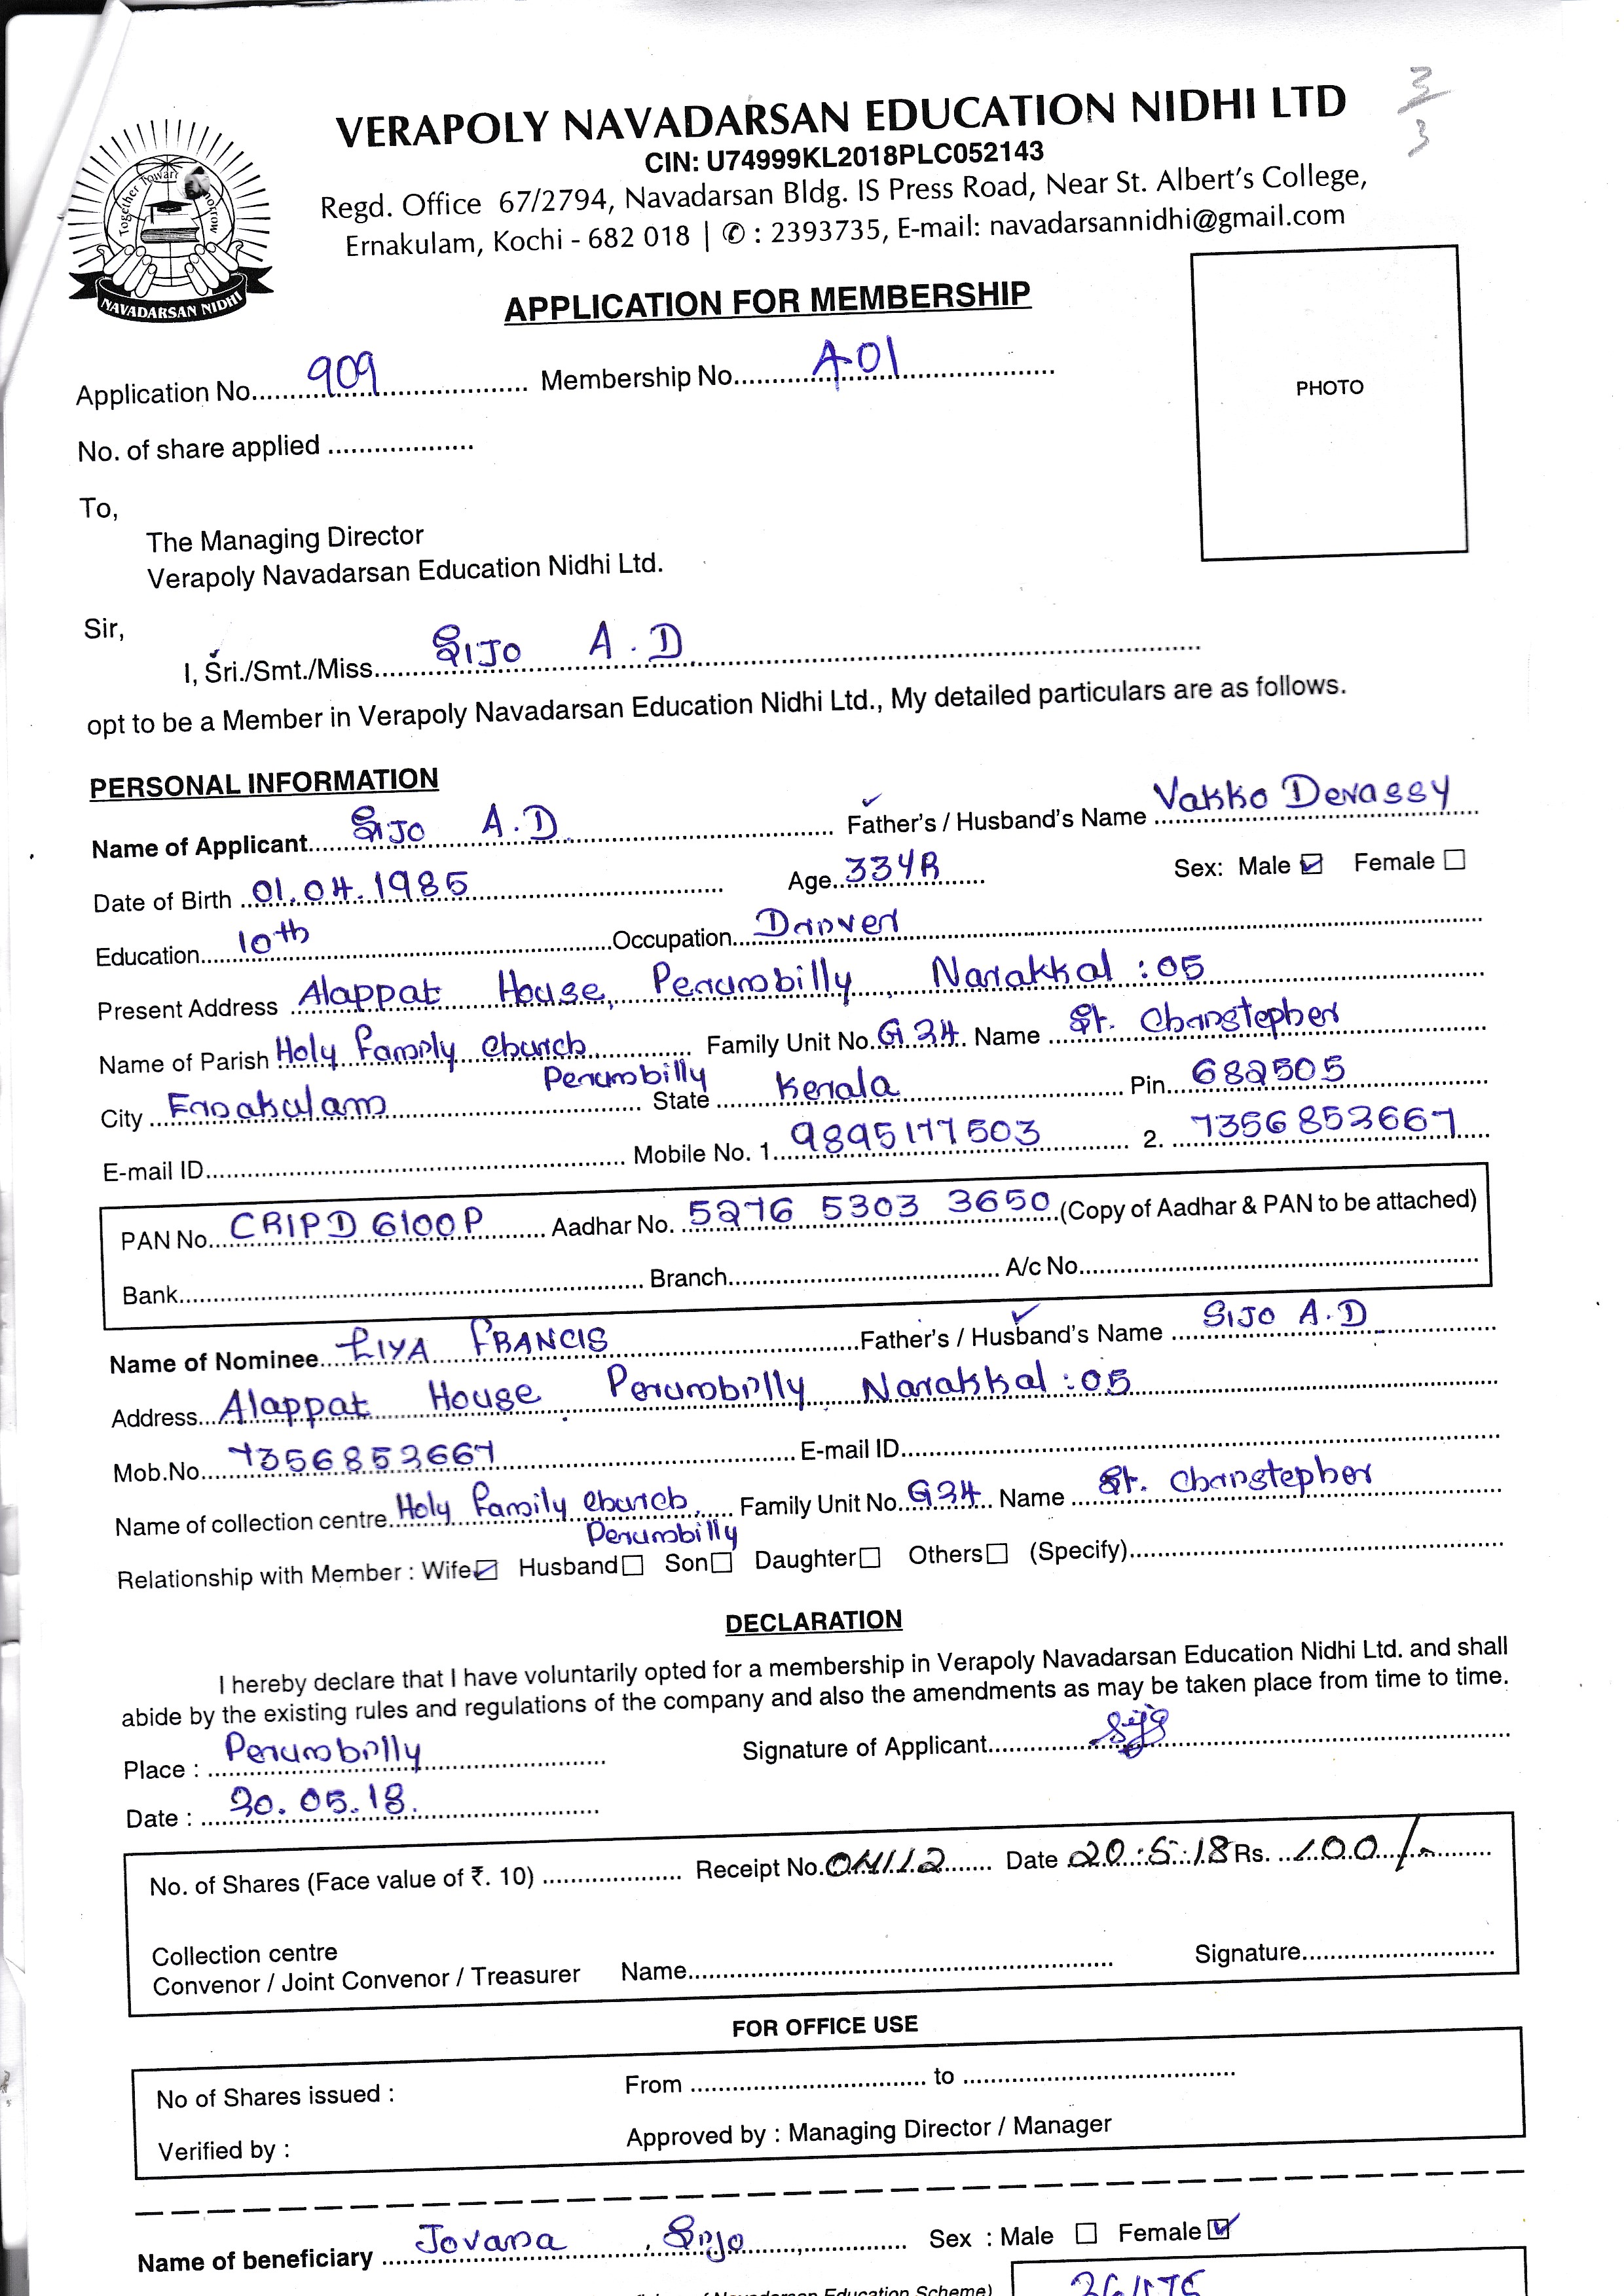 VERAPOLY NAVADARSAN EDUCATION NIDHI LTD
CIN: U74999KL2018PLC052143
Regd. Office 67/2794, Navadarsan Bldg. IS Press Road, Near St. Albert's College,
Ernakulam, Kochi - 682 018 | ✆ : 2393735, E-mail: navadarsannidhi@gmail.com
Together Towar
NAVADARSAN NIDHI
3/3
APPLICATION FOR MEMBERSHIP
PHOTO
Application No. 909 Membership No. A-01
No. of share applied
To,
The Managing Director
Verapoly Navadarsan Education Nidhi Ltd.
Sir,
I, Sri./Smt./Miss. SIJO A.D
opt to be a Member in Verapoly Navadarsan Education Nidhi Ltd., My detailed particulars are as follows.
PERSONAL INFORMATION
Name of Applicant. SIJO A.D. Father's / Husband's Name Vakko Devassy
Date of Birth 01.04.1985 Age. 33YR Sex: Male ☑ Female ☐
Education. 10th Occupation. Driver
Present Address Alappat House, Perumbilly, Narakkal : 05
Name of Parish Holy Family Church, Perumbilly Family Unit No. G24 Name St. Christopher
City Ernakulam State Kerala Pin. 682505
E-mail ID. Mobile No. 1. 9895177503 2. 7356852667
PAN No. CRIPD6100P Aadhar No. 5276 5303 3650 (Copy of Aadhar & PAN to be attached)
Bank. Branch. A/c No.
Name of Nominee. LIYA FRANCIS Father's / Husband's Name SIJO A.D
Address. Alappat House Perumbilly Narakkal : 05
Mob.No. 7356852667 E-mail ID.
Name of collection centre. Holy Family Church, Perumbilly Family Unit No. G24 Name St. Christopher
Relationship with Member : Wife ☑ Husband ☐ Son ☐ Daughter ☐ Others ☐ (Specify)
DECLARATION
I hereby declare that I have voluntarily opted for a membership in Verapoly Navadarsan Education Nidhi Ltd. and shall
abide by the existing rules and regulations of the company and also the amendments as may be taken place from time to time.
Place : Perumbilly Signature of Applicant. Sijo
Date : 20.05.18.
No. of Shares (Face value of ₹. 10) Receipt No. 04112 Date 20.5.18 Rs. 100/-
Collection centre
Convenor / Joint Convenor / Treasurer Name. Signature.
FOR OFFICE USE
No of Shares issued : From to
Verified by : Approved by : Managing Director / Manager
Name of beneficiary Jovana Sijo Sex : Male ☐ Female ☑
of Navadarsan Education Scheme)